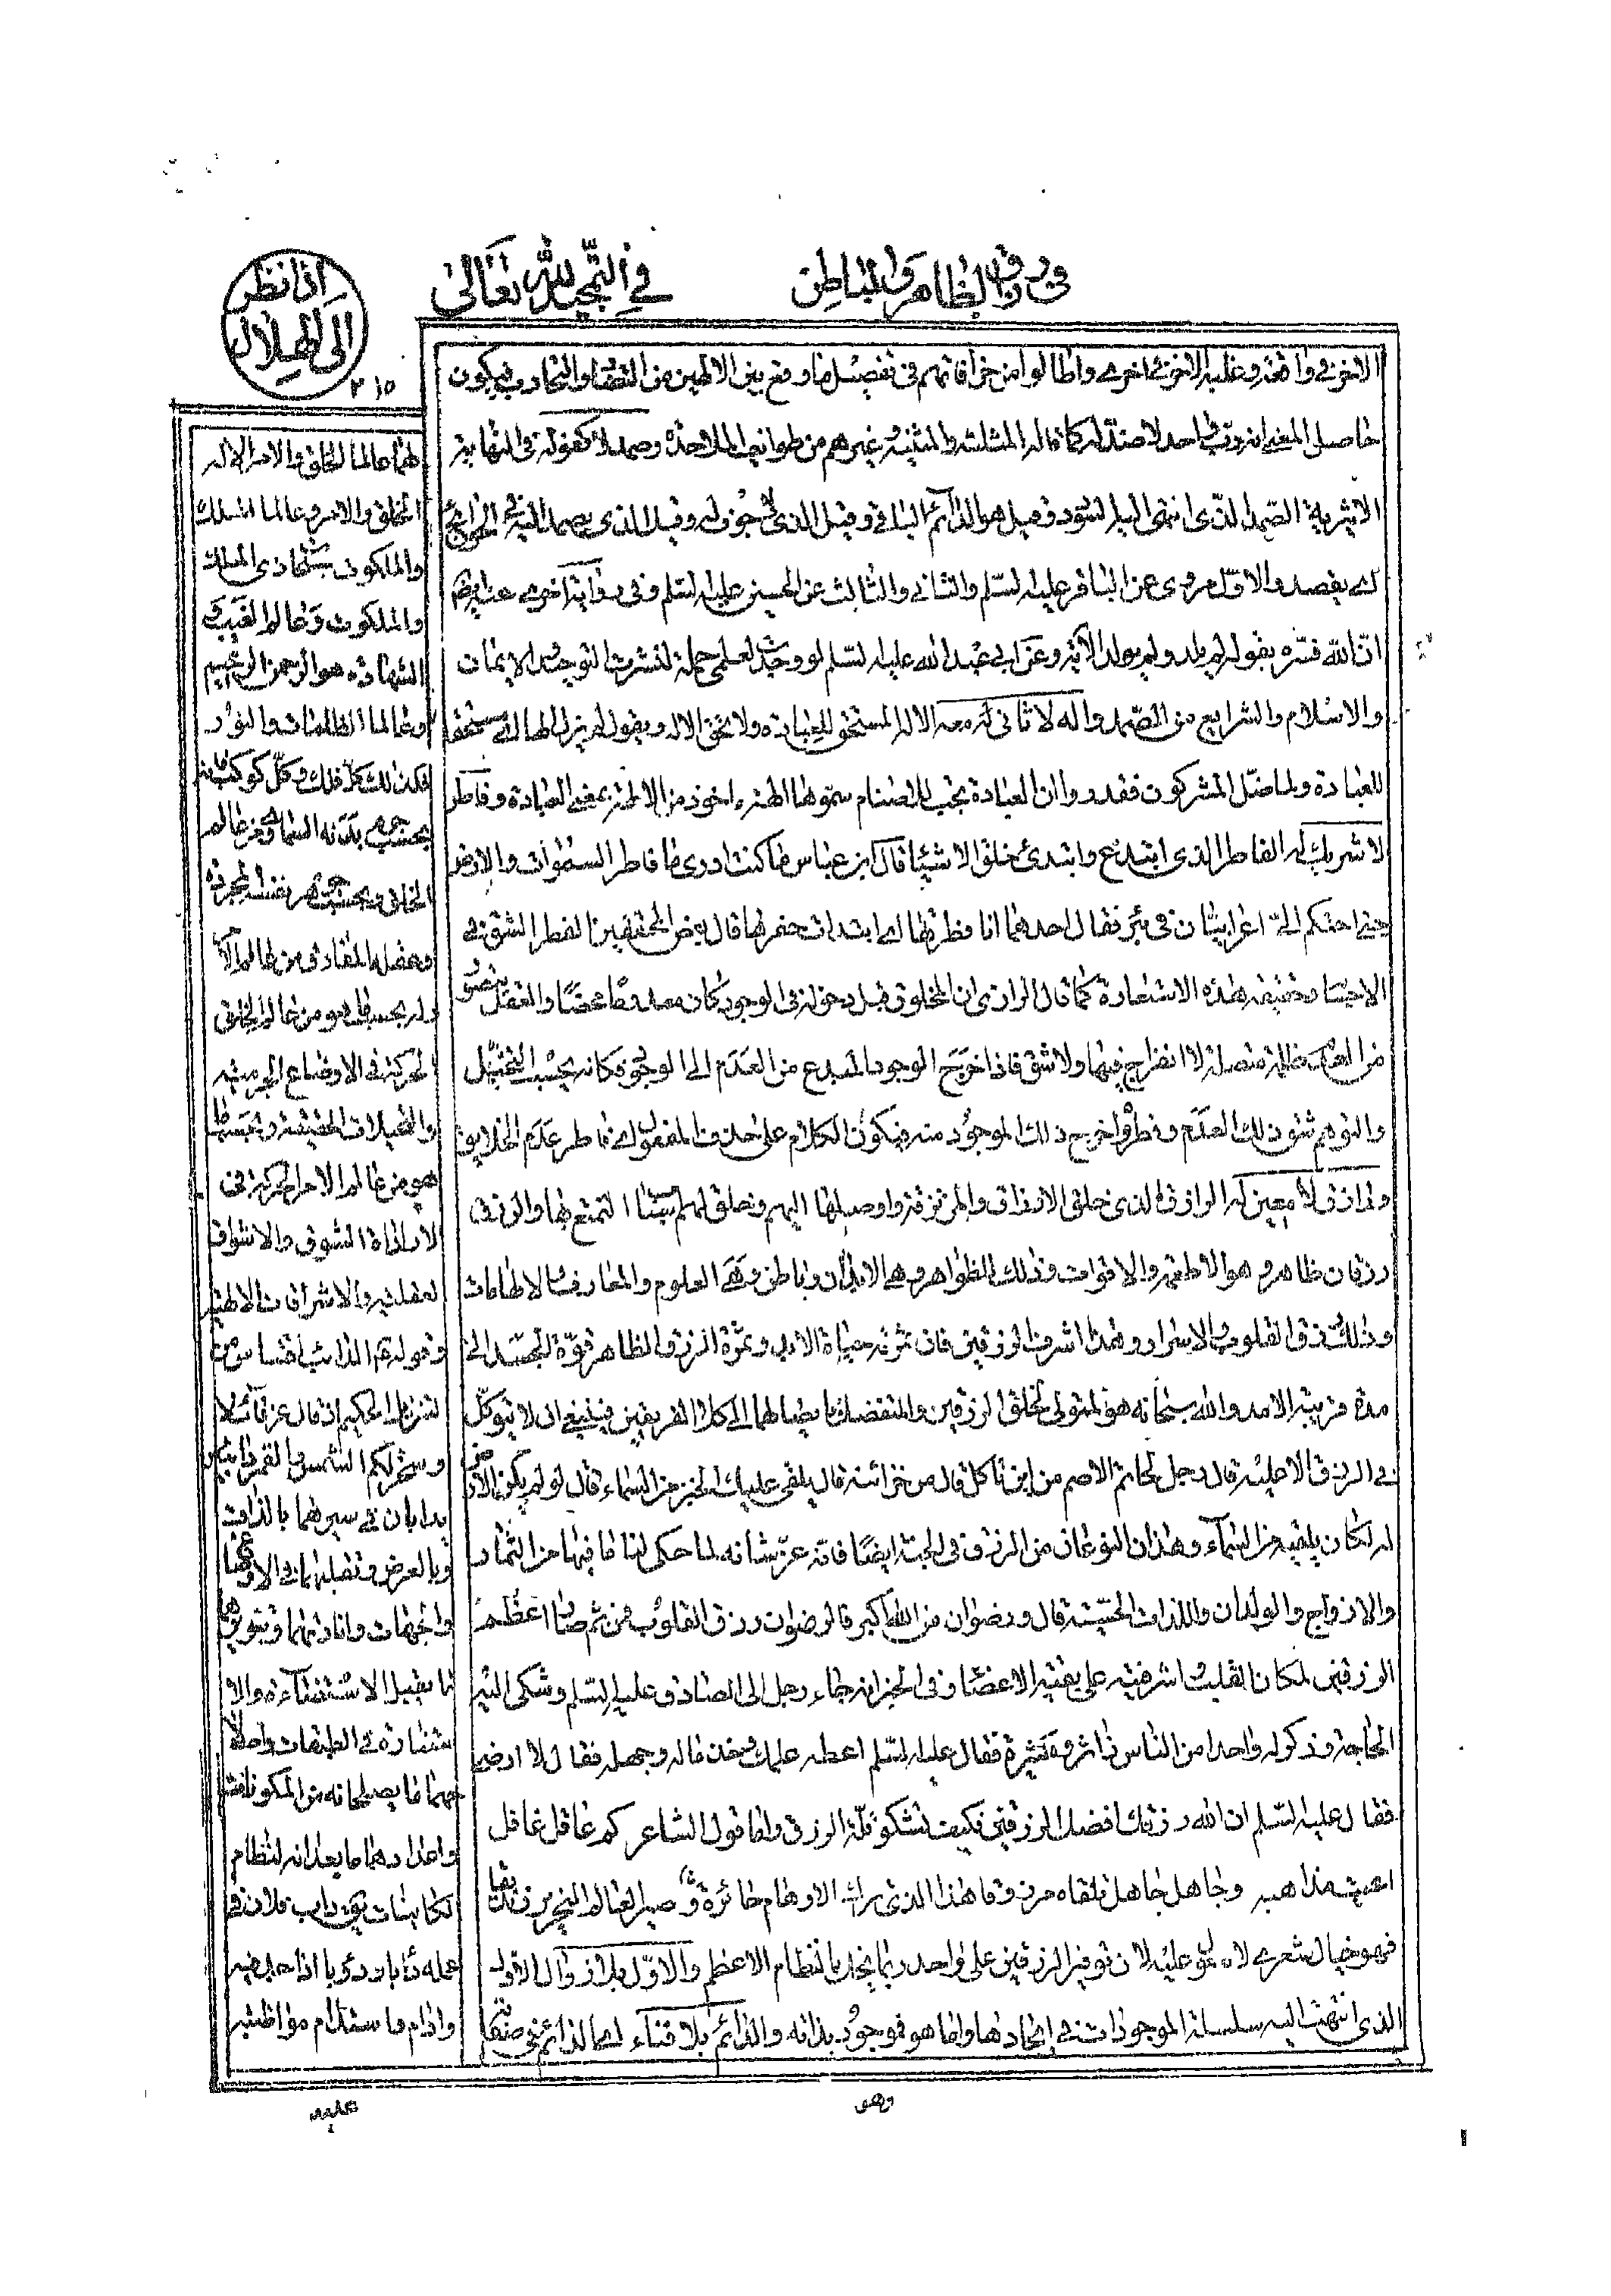 ورزق الظاهر والباطن
في التحميد لله تعالى
اذا نظر
الى الهلال
٢١٥
الاخر في واقعة وغلبة الاخر في اخرى واطالوا من خرافاتهم في تفصيل ما وقع بين الالهين من والتحارب فيكون
حاصل المعنى انه رب واحد لا ضد له كما قاله المثلثة والمثنية وغيرهم من طوايف الملاحدة وصمد لا كفو له في النهاية
الاثيرية الصمد الذي انتهى اليه السودد وقيل هو الدائم الباقي وقيل الذي لا جوف له وقيل الذي يصمد اليه في الحوائج
اي يقصد والاول مروي عن الباقر عليه السلم والثاني والثالث عن الحسين عليه السلم وفي رواية اخرى عنه
ان الله فسره بقوله لم يلد ولم يولد الآية وعن ابي عبد الله عليه السلم لو وجدت لعلمي حملة لنشرت التوحيد والايمان
والاسلام والشرايع من الصمد واله لا ثاني له معه الاله المستحق للعبادة ولا يحق الاله ويقول لم يزل الها اي مستحقا
للعبادة ولما ضل المشركون فقدروا ان العبادة تجب للاصنام سموها الهة ماخوذ من الالهة بمعنى العبادة وفاطر
لا شريك له الفاطر الذي ابتدع وابتدئ خلق الاشيئا قال ابن عباس ما كنت ادري ما فاطر السموات والارض
حتى احتكم الي اعرابيان في بئر فقال احدهما انا فطرتها اي ابتدات حفرها قال بعض المحققين الفطر الشق في
الاجسا وحقيقة هذه الاستعارة كما قال الرازي ان المخلوق قبل دخوله في الوجود كان معدما محضا والعقل يتصور
من العدم ظلمة متصلة لا انفراج فيها ولا شق فاذا اخرج الوجود المبدع من العدم الى الوجود فكانه بحسب التخيل
والتوهم شق ذلك العدم وفطره واخرج ذلك الموجود منه فيكون الكلام على حذف المفعول اي فاطر عدم الخلايق
ورازق لا معين له الرازق الذي خلق الارزاق والمرتزقة واوصلها اليهم وخلق لهم اسباب التمتع بها والرزق
رزقان ظاهر وهو الاطعمة والاقوات وذلك للظواهر وهي الابدان وباطن وهي العلوم والمعارف والالهامات
وذلك رزق القلوب والاسرار وهذا اشرف الرزقين فان ثمرته حياة الابد وثمرة الرزق الظاهر قوة الجسد الى
مدة قريبة الامد والله سبحانه هو المتولي لخلق الرزقين والمتفضل بايصالهما الى كلا الفريقين فينبغي ان لا يتوكل
في الرزق الا عليه قال رجل لحاتم الاصم من اين تاكل قال من خزائنه قال يلقى عليك الخبز من السماء قال لو لم يكن الارض
له لكان يلقيه من السماء وهذان النوعان من الرزق في الجنة ايضا فانه عز شانه لما حكى لنا ما فيها من الثمار
والازواج والولدان واللذات الحسية قال ورضوان من الله اكبر فالرضوان رزق القلوب ومن ثم صار اعظم
الرزقين لمكان القلب واشرفيته على بقية الاعضا وفي الخبر انه جاء رجل الى الصادق عليه السلم وشكى اليه
الحاجة وذكر له واحدا من الناس ذا ثروة كثيرة فقال عليه السلم اعطه علمك وخذ ماله وجهله فقال لا ارضى
فقال عليه السلم ان الله رزقك افضل الرزقين فكيف تشكو قلة الرزق واما قول الشاعر كم عاقل عاقل
اعيت مذاهبه وجاهل جاهل تلقاه مرزوقا هذا الذي ترك الاوهام حائرة وصير العالم النحرير زنديقا
فهو خيال شعري لا يعول عليه لان توفير الرزقين على واحد ربما يخل بانتظام الاعظم والاول بلا زوال الاول
الذي انتهت اليه سلسلة الموجودات في ايجادها واما هو فموجود بذاته والدائم بلا فناء
لهما عالما الخلق والامر الا له
الخلق والامر وعالما الملك
والملكوت سبحان ذي الملك
والملكوت وعالم الغيب و
الشهادة هو الرحمن الرحيم
وعالما الظلمات والنور
فكذلك كل فلك وكل كوكب فانه
بحسب جوهر بدنه السماوي من عالم
الخلق وبحسب جوهر نفسه المجردة
وعقله المفارق من عالم الامر
وله بحسب ما هو من عالم الخلق
الحركة في الاوضاع الجرمية
والتخيلات الحقيقية وبحسب ما
هو من عالم الامر الحركة في
الارادات الشوقية والاشواق
العقلية والاشراقات الالهية
لتنزيل الحكيم اذ قال عز قائلا
وسخر لكم الشمس والقمر دائبين
يدابان في سيرهما بالذات
وبالعرض وتقلبهما في الاوضاع
والجهات وانارتهما
ما يقبل الاستضاءة والا
ستنارة في الطبقات واصلا
حهما ما يصلحانه من المكونات
واعدادهما ما يعدانه لنظام
الكائنات يقال داب فلان في
عمله دابا ودؤبا اذا جد فيه
وادام ما استدام مواظبته
وهى
عليه